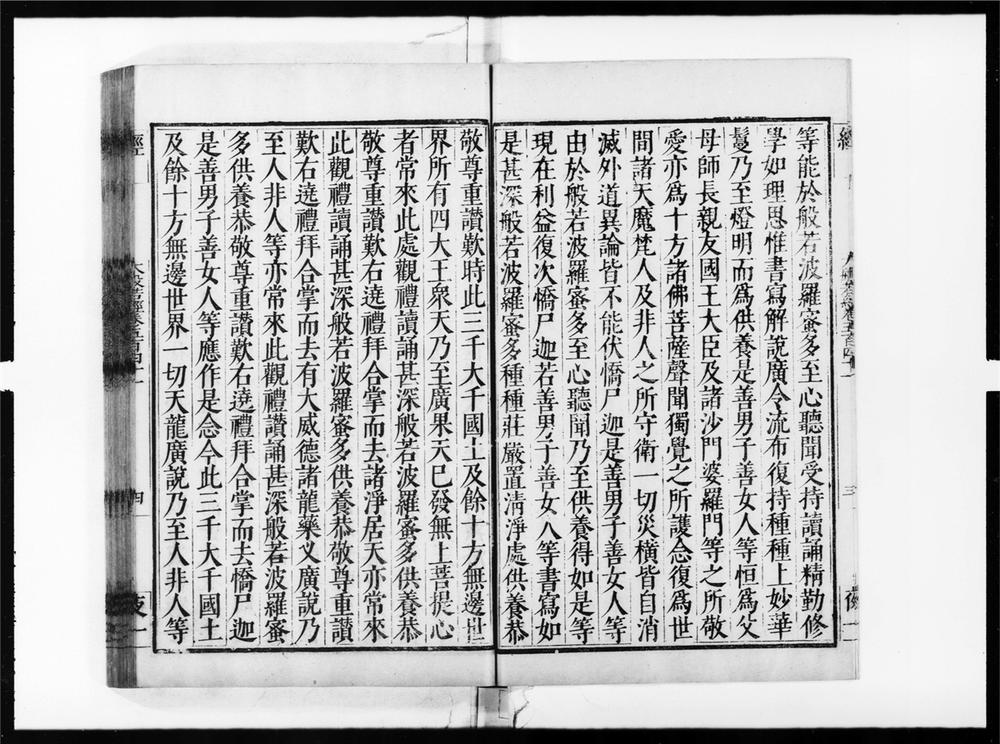 經
三
夜一
等能於般若波羅蜜多至心聽聞受持讀誦精勤修
學如理思惟書寫解說廣令流布復持種種上妙華
鬘乃至燈明而爲供養是善男子善女人等恒爲父
母師長親友國王大臣及諸沙門婆羅門等之所敬
愛亦爲十方諸佛菩薩聲聞獨覺之所護念復爲世
間諸天魔梵人及非人之所守衛一切災橫皆自消
滅外道異論皆不能伏憍尸迦是善男子善女人等
由於般若波羅蜜多至心聽聞乃至供養得如是等
現在利益復次憍尸迦若善男子善女人等書寫如
是甚深般若波羅蜜多種種莊嚴置清淨處供養恭
敬尊重讚歎時此三千大千國土及餘十方無邊世
界所有四大王衆天乃至廣果天已發無上菩提心
者常來此處觀禮讀誦甚深般若波羅蜜多供養恭
敬尊重讚歎右遶禮拜合掌而去諸淨居天亦常來
此觀禮讀誦甚深般若波羅蜜多供養恭敬尊重讚
歎右遶禮拜合掌而去有大威德諸龍藥叉廣說乃
至人非人等亦常來此觀禮讚誦甚深般若波羅蜜
多供養恭敬尊重讚歎右遶禮拜合掌而去憍尸迦
是善男子善女人等應作是念今此三千大千國土
及餘十方無邊世界一切天龍廣說乃至人非人等
經
大般若經卷五百四十一
四
夜一